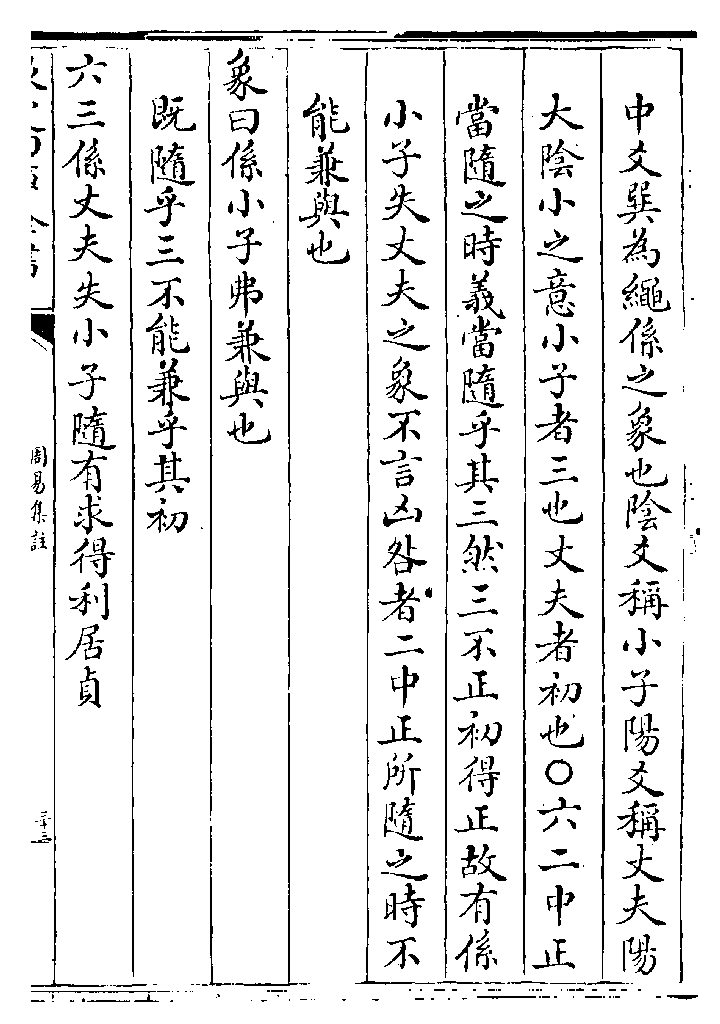 中爻巽為繩係之象也陰爻稱小子陽爻稱丈夫陽
大陰小之意小子者三也丈夫者初也○六二中正
當隨之時義當隨乎其三然三不正初得正故有係
小子失丈夫之象不言凶咎者二中正所隨之時不
能兼與也
象曰係小子弗兼與也
既隨乎三不能兼乎其初
六三係丈夫失小子隨有求得利居貞
周易集註